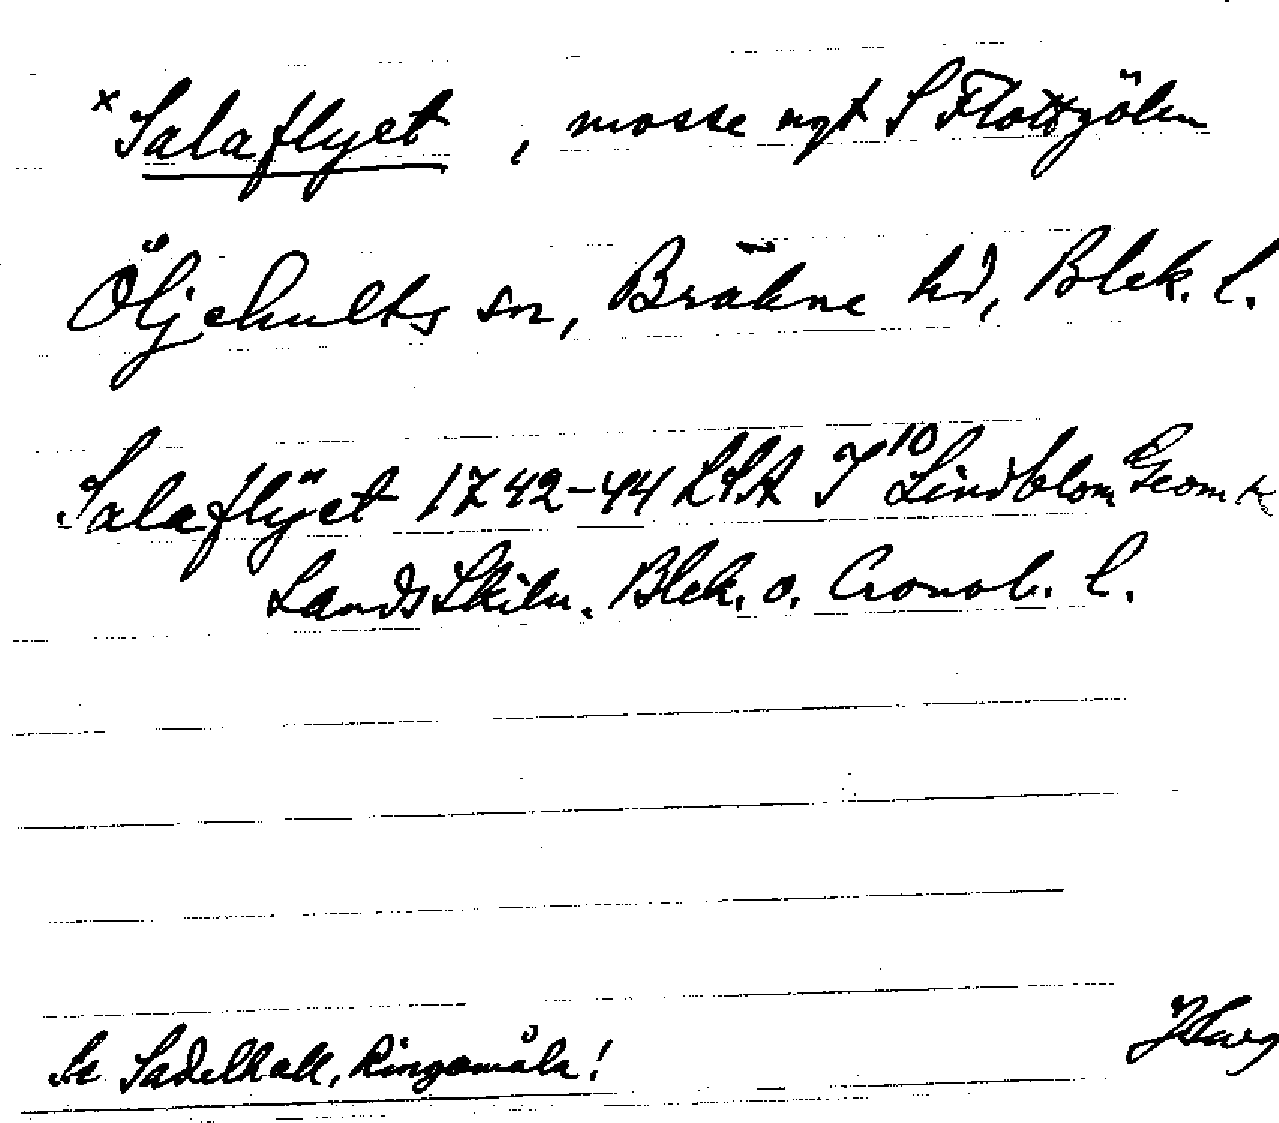 x Salaflyet, mosse ngt S Flottgölen
Öljehults sn, Bräkne hd, Blek. l.
Salaflÿet 1742-44 LSA I 10 Lindblom Geom k
LandsSkiln. Blek. o. Cronob. l.
Se Sadelhall, Ringamåla!